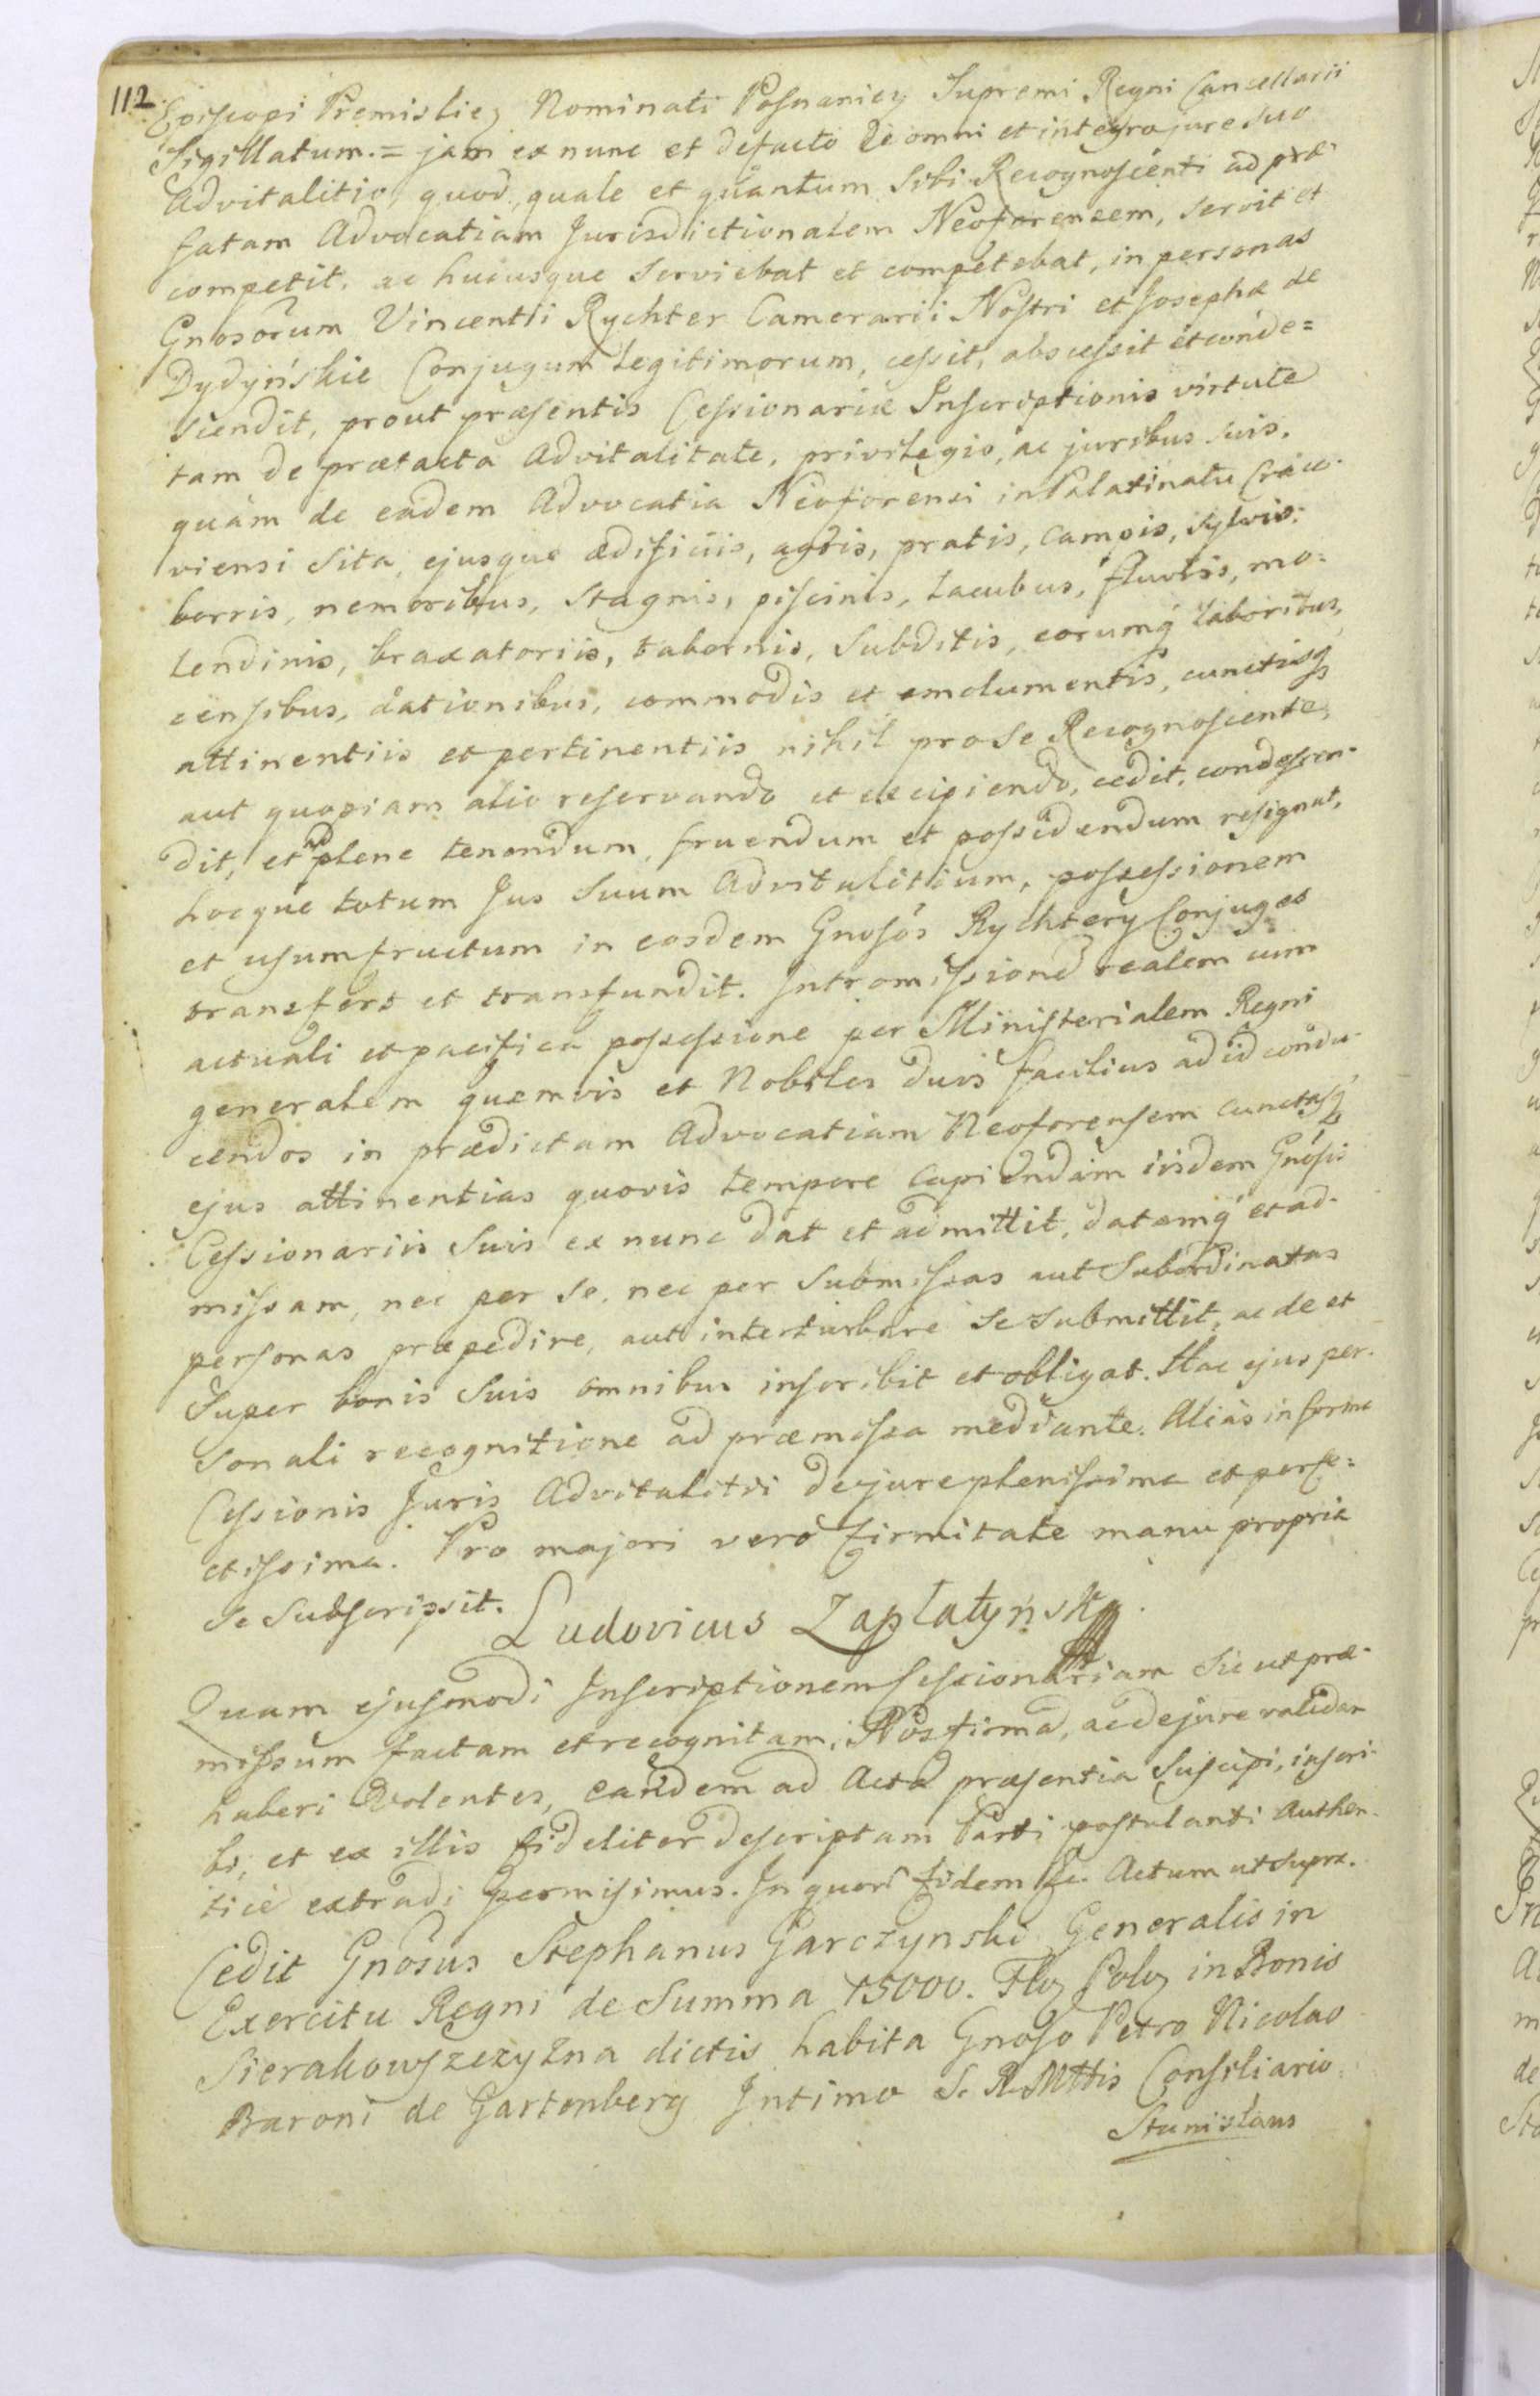 112
Episcopi Premisliez Nominati Posnaniez Supremi Regni Cancellarii
Sigillatum.= jam ex nunc et defacto de omni et integro jure suo
Advitalitio, quod, quale et quantum sibi Recognoscenti ad præ-
fatam Advocatiam Jurisdictionalem Neoforensem, servit et
competit, ac hucusque serviebat et competebat, in personas
Gnosorum Vincentii Rychter Camerarii Nostri et Josephæ de
Dydyńskie Conjugum legitimorum, cessit, abscessit et conde=
scendit, prout præsentis Cessionariæ Inscriptionis virtute
tam de prætacta Advitalitate, privilegio, ac juribus suis,
quàm de eâdem Advocatia Neoforensi in Palatinatu Craco-
viensi sita, ejusque ædificiis, agris, pratis, campis, sylvis,
borris, nemoribus, stagnis, piscinis, lacubus, fluviis, mo-
lendinis, braxatoriis, tabernis, Subditis, eorumq́ laboribus,
censibus, dationibus, commodis et emolumentis, cunctisq́
attinentiis et pertinentiis nihil pro se Recognoscente,
aut quopiam alio reservando et excipiendo, cedit, condescen-
dit, et ad plene tenendum, fruendum et possidendum resignat,
hocque totum Jus Suum Advitalitium, possessionem
et usumfructum in eosdem Gnosos Rychtery Conjuges
transfert et transfundit. Intromissioné realem cum
actuali et pacifica possessione per Ministerialem Regni
generalem quemvis et Nobiles duos facilius ad id condu-
cendos in prædictam Advocatiam Neoforensem cunctasq́
ejus attinentias quovis tempore capiendam iisdem Gnosis
Cessionariis Suis ex nunc dat et admittit, datamq́ et ad-
missam, nec per se, nec per submissas aut Subordinatas
personas præpedire, aut interturbare se submittit, ac de et
Super bonis Suis omnibus inscribit et obligat. Hac ejus per-
sonali recognitione ad præmissa mediante. Aliàs in forma
Cessionis Juris Advitalitii dejure plenissima et perfe=
ctissima. Pro majori verò firmitate manu propria
se subscripsit. Ludovicus Zapłatyński.
Quam ejusmodi Inscriptionem Cessionariam sic ut præ-
missum factam et recognitam, Nos firmá, ac dejure validam
haberi volentes, eandem ad Acta præsentia suscipi, inscri-
bi, et ex illis fideliter descriptam Parti postulanti Authen-
ticè extradi permisimus. In quorú fidem &c. Actum ut supra.
Cedit Gnosus Stephanus Garczynski Generalis in
Exercitu Regni de Summa 15000. Floz Poloz in Bonis
Sierakowszczyzna dictis habita Gnoso Petro Nicolao
Baroni de Gartenberg Intimo S. R. Mttis Consiliario.
Stanislaus